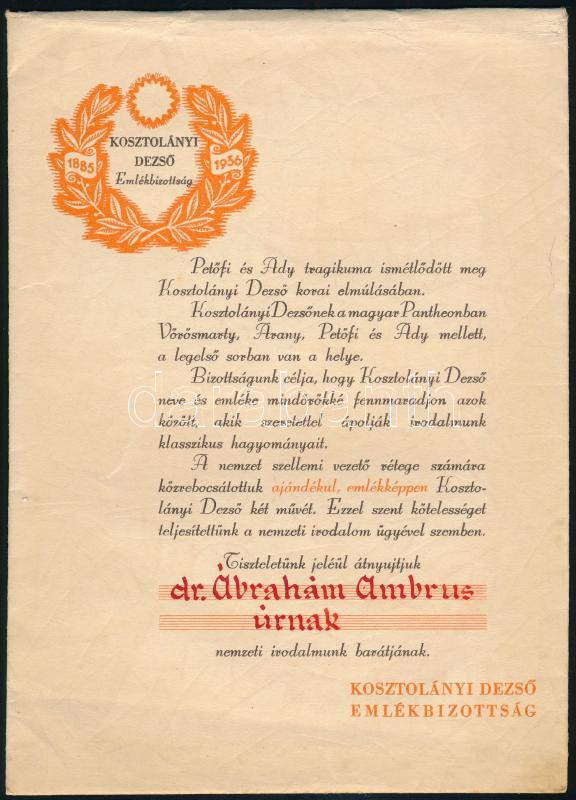 KOSZTOLÁNYI
DEZSŐ
1885 1936
Emlékbizottság
Petőfi és Ady tragikuma ismétlődött meg
Kosztolányi Dezső korai elmúlásában.
Kosztolányi Dezsőnek a magyar Pantheonban
Vörösmarty, Arany, Petőfi és Ady mellett,
a legelső sorban van a helye.
Bizottságunk célja, hogy Kosztolányi Dezső
neve és emléke mindörökké fennmaradjon azok
között, akik szeretettel ápolják irodalmunk
klasszikus hagyományait.
A nemzet szellemi vezető rétege számára
közrebocsátottuk ajándékul, emlékképpen Koszto-
lányi Dezső két művét. Ezzel szent kötelességet
teljesítettünk a nemzeti irodalom ügyével szemben.
Tiszteletünk jeléül átnyujtjuk
dr. Ábrahám Ambrus
úrnak
nemzeti irodalmunk barátjának.
KOSZTOLÁNYI DEZSŐ
EMLÉKBIZOTTSÁG